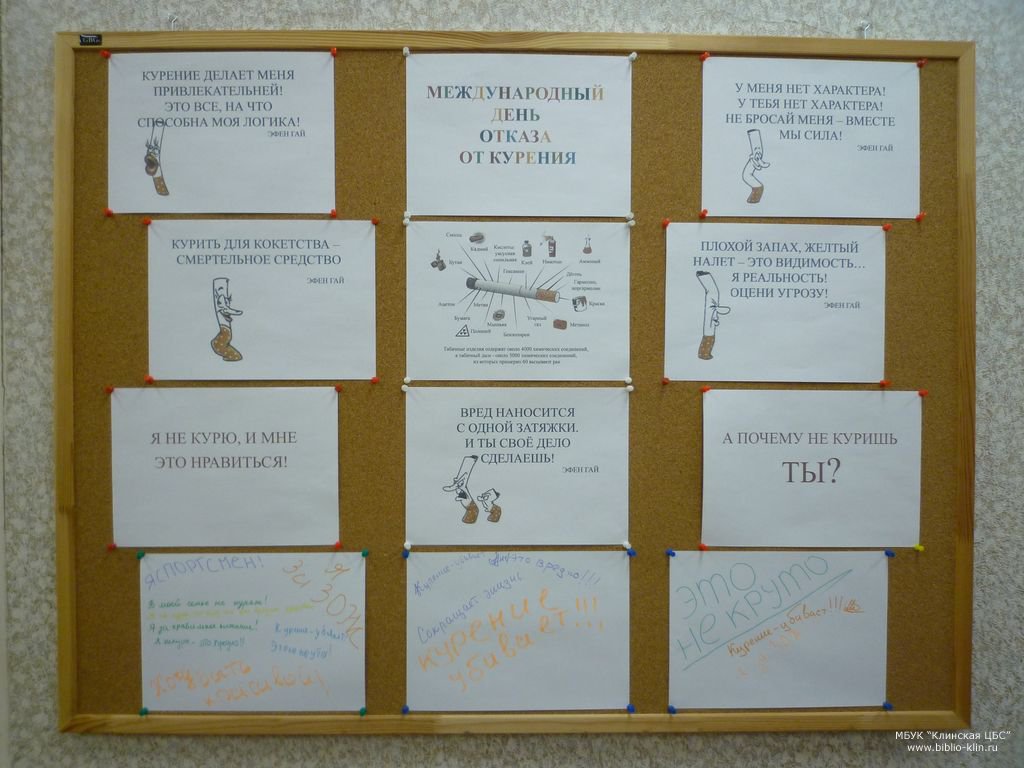 GBG
КУРЕНИЕ ДЕЛАЕТ МЕНЯ
ПРИВЛЕКАТЕЛЬНЕЙ!
ЭТО ВСЕ, НА ЧТО
СПОСОБНА МОЯ ЛОГИКА!
ЭФЕН ГАЙ
МЕЖДУНАРОДНЫЙ
ДЕНЬ
ОТКАЗА
ОТ КУРЕНИЯ
У МЕНЯ НЕТ ХАРАКТЕРА!
У ТЕБЯ НЕТ ХАРАКТЕРА!
НЕ БРОСАЙ МЕНЯ – ВМЕСТЕ
МЫ СИЛА!
ЭФЕН ГАЙ
КУРИТЬ ДЛЯ КОКЕТСТВА –
СМЕРТЕЛЬНОЕ СРЕДСТВО
ЭФЕН ГАЙ
Смолы
Кадмий
Кислоты:
уксусная
Клей
Никотин
Аммоний
Бутан
Гексамин
Дёготь
Гармолин,
норгармолин
Краски
Ацетон
Метан
Бумага
Мышьяк
Угарный
газ
Метанол
Полоний
Бензопирен
Табачные изделия содержат около 4000 химических соединений,
а табачный дым - около 5000 химических соединений,
из которых примерно 60 вызывают рак
ПЛОХОЙ ЗАПАХ, ЖЕЛТЫЙ
НАЛЕТ – ЭТО ВИДИМОСТЬ…
Я РЕАЛЬНОСТЬ!
ОЦЕНИ УГРОЗУ!
ЭФЕН ГАЙ
Я НЕ КУРЮ, И МНЕ
ЭТО НРАВИТЬСЯ!
ВРЕД НАНОСИТСЯ
С ОДНОЙ ЗАТЯЖКИ.
И ТЫ СВОЁ ДЕЛО
СДЕЛАЕШЬ!
ЭФЕН ГАЙ
А ПОЧЕМУ НЕ КУРИШЬ
ТЫ?
Я СПОРТСМЕН!
Я
ЗА ЗОЖ
В моей семье не курят!
Я за правильное питание!
Курение-убивает
Это не круто!
Хочу быть
красивой!
Курение-убивает
Это вредно!!!
Сокращает жизнь
курение
убивает!!!
ЭТО
НЕ КРУТО
Курение-убивает!!!
МБУК "Клинская ЦБС"
www.biblio-klin.ru